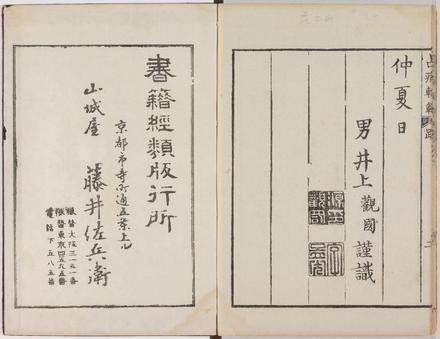 仲夏日
男井上觀國謹識
書籍經類版行所
京都市寺町通五条上ル
山城屋 藤井佐兵衛
振替大阪三一五一番
振替東京
電話下五八五番